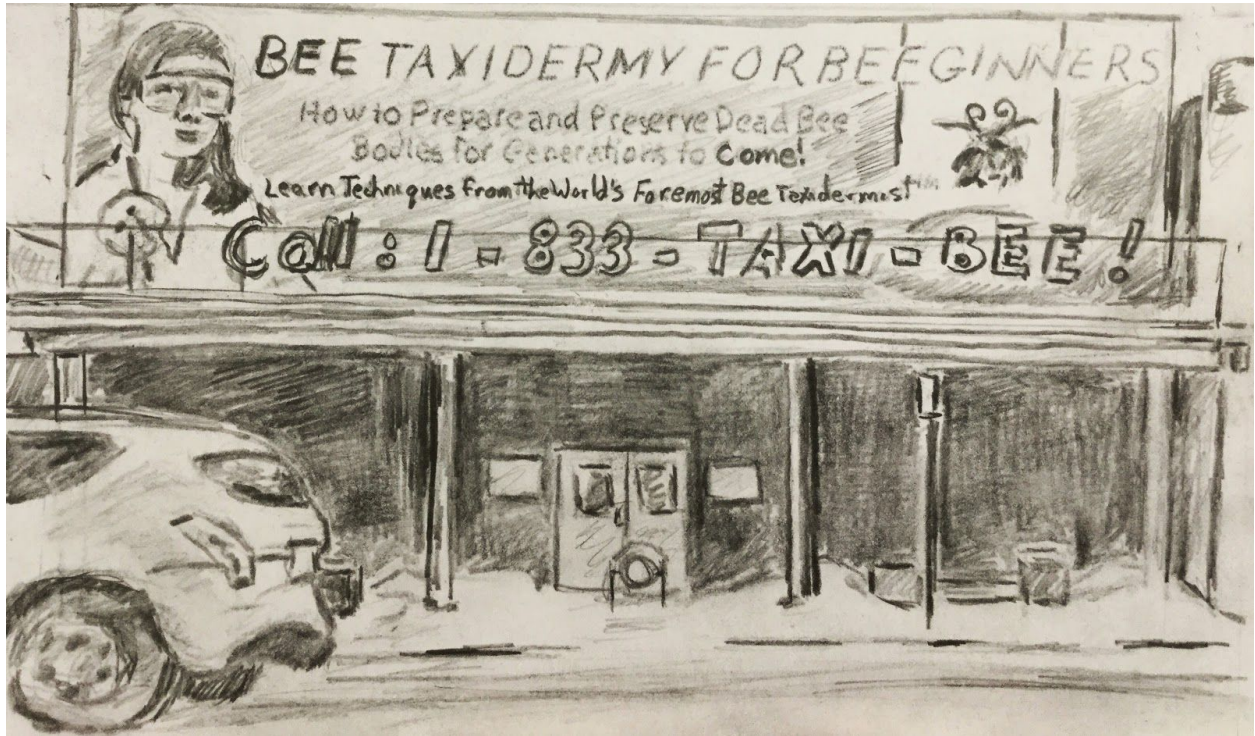 BEE TAXIDERMY FOR BEEGINNERS
How to Prepare and Preserve Dead Bee
Bodies for Generations to Come!
Learn Techniques from the World's Foremost Bee Taxidermist
Call: 1-833-TAXI-BEE!